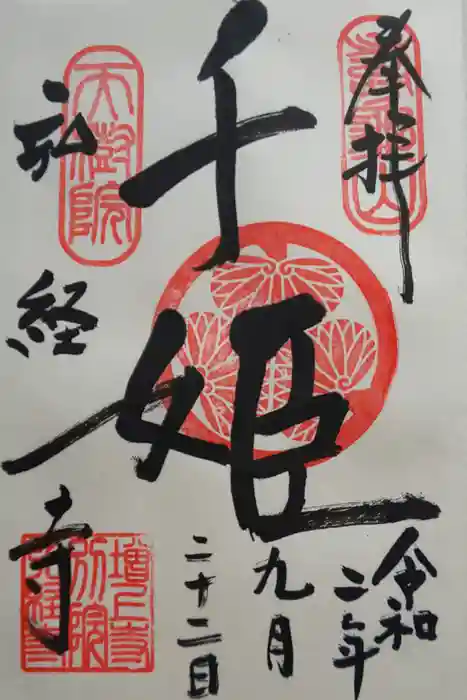 奉拝
令和
二年
九月
二十二日
千姫
天樹院
弘経寺
増上寺
別院